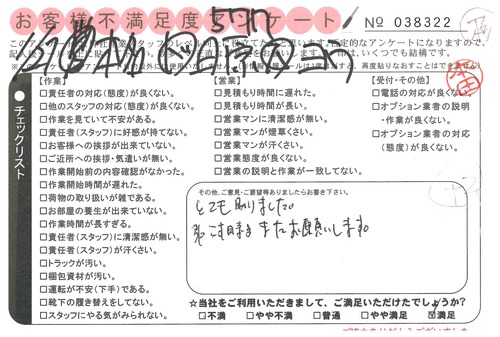 お客様不満足度アンケート
№ 038322
チェックリスト
【作業】
□責任者の対応(態度)が良くない。
□他のスタッフの対応(態度)が良くない。
□作業を見ていて不安がある。
□責任者(スタッフ)に好感が持てない。
□お客様への挨拶が出来ていない。
□ご近所への挨拶・気遣いが無い。
□作業開始前の内容確認がなかった。
□作業開始時間が遅れた。
□荷物の取り扱いが雑である。
□お部屋の養生が出来ていない。
□作業時間が長すぎる。
□責任者(スタッフ)に清潔感が無い。
□責任者(スタッフ)が汗くさい。
□トラックが汚い。
□梱包資材が汚い。
□運転が不安(下手)である。
□靴下の履き替えをしてない。
□スタッフにやる気がみられない。
【営業】
□見積もり時間に遅れた。
□見積もり時間が長い。
□営業マンに清潔感が無い。
□営業マンが煙草くさい。
□営業マンが汗くさい。
□営業態度が良くない。
□営業の説明と作業が一致してない。
【受付・その他】
□電話の対応が良くない。
□オプション業者の説明
・作業が良くない。
□オプション業者の対応
(態度)が良くない。
その他、ご意見・ご要望等ありましたらお書き下さい。
とても助りました。
またお願いします。
☆当社をご利用いただきまして、ご満足いただけたでしょうか?
□不満 □やや不満 □普通 □やや満足 ☑満足